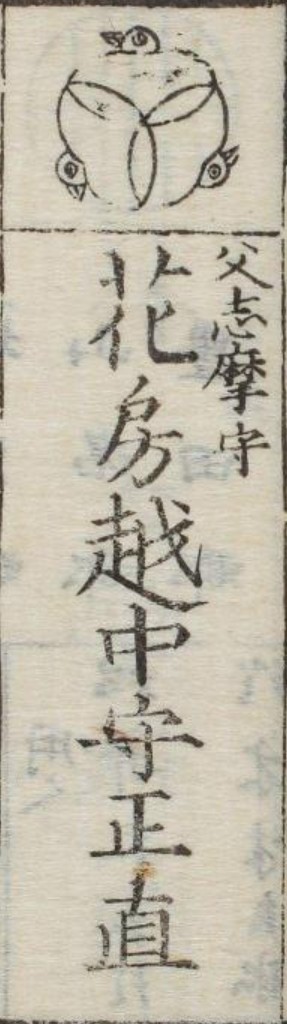 父志摩守
花房越中守正直